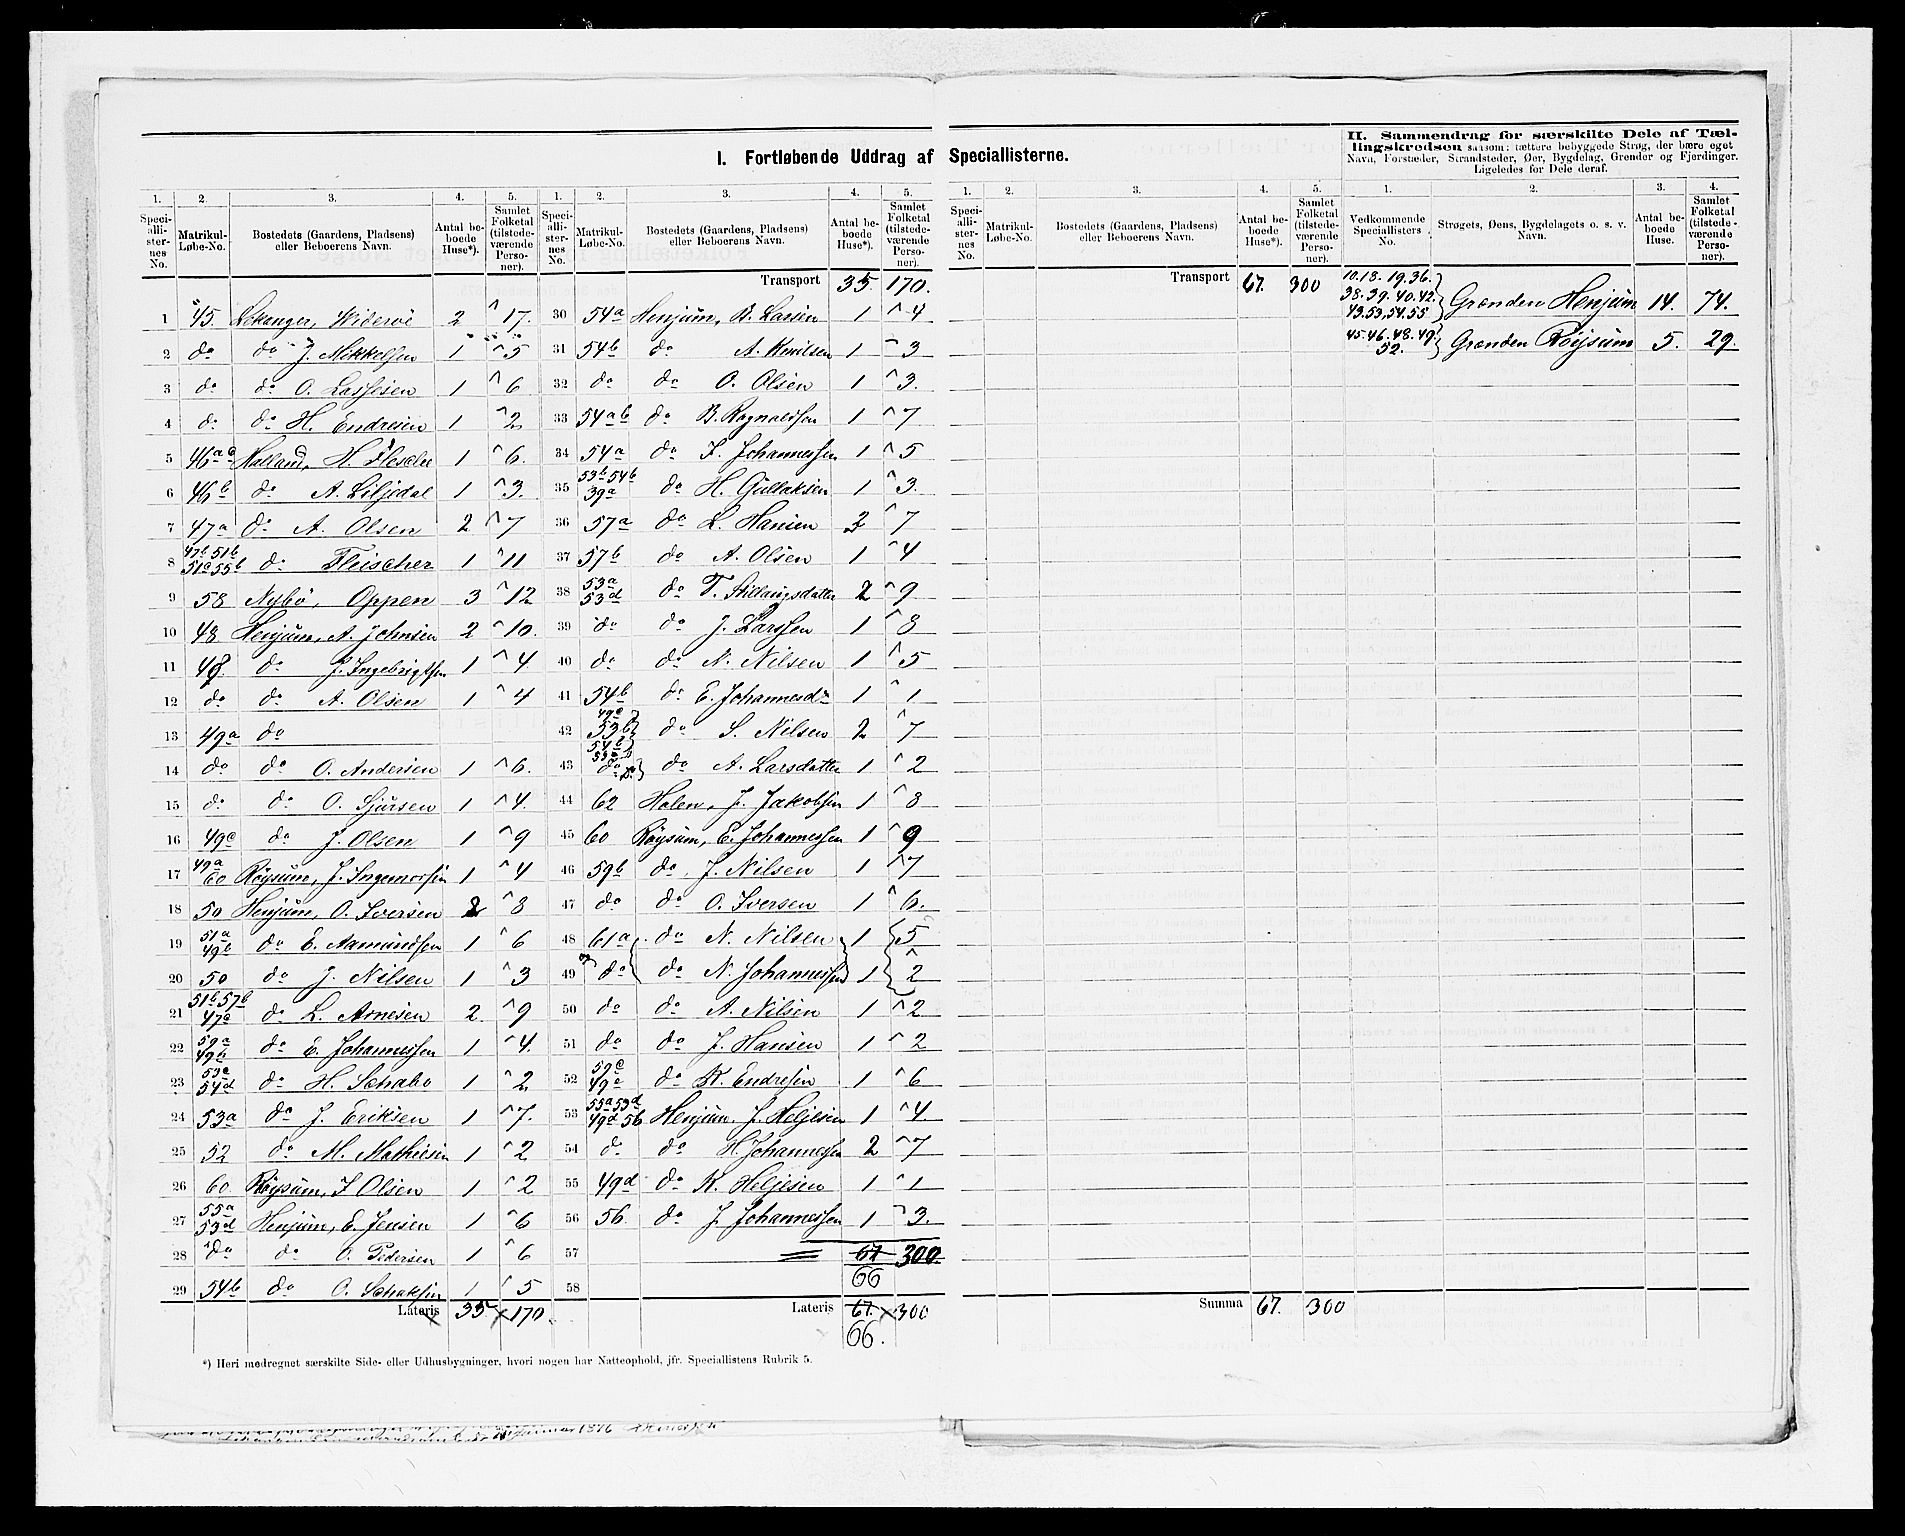 I. Fortløbende Uddrag af Speciallisterne.
1. 2. 3. 4. 5.
Speciallisternes No. Matrikul-Løbe-No. Bostedets (Gaardens, Pladsens) eller Beboerens Navn. Antal beboede Huse*). Samlet Folketal (tilstedeværende Personer).
1 45. Lekanger, Widerøe 2 17.
2 do do J. Mikkelsen 1 5
3 do do O. Lassesen 1 6
4 do do H. Endresen 1 2
5 46ab Halland, H. Flesche 1 6.
6 46b do A. Liljedal 1 3.
7 47a do A. Olsen 2 7
8 47b 51b 51c 55b do Fleischer 1 11
9 58 Nybö, Oppen 3 12
10 48 Henjum, A. Johnsen 2 10.
11 48. do J. Ingebrigtsen 1 4.
12 do do A. Olsen 1 4
13 49a do
14 do do O. Andersen 1 6.
15 do do O. Sjursen 1 4.
16 49c do J. Olsen 1 9
17 49a 60 Röysum, J. Ingemorsen 1 4
18 50 Henjum, O. Iversen 2 8
19 51a 49b do E. Aamundsen 1 6
20 50 do J. Nilsen 1 3
21 51b 57b 47a do L. Arnesen 2. 9
22 59a 49b do E. Johannessen 1 4.
23 53c 54d do H. Schabo 1 2
24 53a do J. Eriksen 1 7.
25 52 do M. Mathiesen 1 2
26 60 Röysum, J Olsen 1 2
27 55a 53d Henjum, E. Jensen 1 6
28 do do O. Pedersen 1 6
29 54b do O. Schaksen 1 5
Lateris 35 170.
1. 2. 3. 4. 5.
Speciallisternes No. Matrikul-Løbe-No. Bostedets (Gaardens, Pladsens) eller Beboerens Navn. Antal beboede Huse*). Samlet Folketal (tilstedeværende Personer).
Transport 35. 170.
30 54a Henjum, B. Lassen 1 4
31 54b do A. Knuilsen 1 3
32 do do O. Olsen 1 3.
33 54ab do B. Ragnaldsen 1 7
34 54a do J. Johannessen 1 5
35 53b 54b 39a do H. Gullaksen 1 3.
36 57a do L. Hansen 3 7
37 57b do A. Olsen 1 4
38 53a 53d do T. Stidangsdatter 2 9
39 do do J. Larssen 1 8
40 do do N. Nilsen 1 5
41 54b do E. Johannesdr 1 1
42 49c 53b 54b do S. Nilsen 2 7
43 do do A. Larsdatter 1. 2
44 62 Holen, J. Jakobsen 1 8
45 60 Röysum, E. Johannessen 1 9
46 59b do J. Nilsen 1 7
47 do do O. Iversen 1 6.
48 61a do N. Nilsen 1 5
49 do do N. Johannessen 1 2
50 do do A. Nilsen 1 2
51 do do J. Hansen 1 2
52 59c 49c do K. Endresen 1 6
53 55a 53d 49d 56 Henjum, J. Heljesen 1 4.
54 do do H. Johannessen 2 7
55 49d do K. Heljesen 1 1
56 56. do J. Johannessen 1 3.
57 67 300.
66
58
Lateris 67. 300
66.
*) Heri medregnet særskilte Side- eller Udhusbygninger, hvori nogen har Natteophold, jfr. Speciallistens Rubrik 5.
1. 2. 3. 4. 5.
Speciallisternes No. Matrikul-Løbe-No. Bostedets (Gaardens, Pladsens) eller Beboerens Navn. Antal beboede Huse*). Samlet Folketal (tilstedeværende Personer).
Transport 67. 300
Summa 67. 300
II. Sammendrag for særskilte Dele af Tællingskredsen saasom: tættere bebyggede Strøg, der bære eget
Navn, Forstæder, Strandsteder, Øer, Bygdelag, Grender og Fjerdinger.
Ligeledes for Dele deraf.
1. 2. 3. 4.
Vedkommende Speciallisters No. Strøgets, Øens, Bygdelagets o. s. v. Navn. Antal beboede Huse. Samlet Folketal (tilstedeværende Personer).
10. 18. 19. 36. 38. 39. 40. 42. 43. 53, 54. 55 Grænden Henjum 14. 74.
45. 46. 48. 49. 52. Grænden Röysum 5. 29.